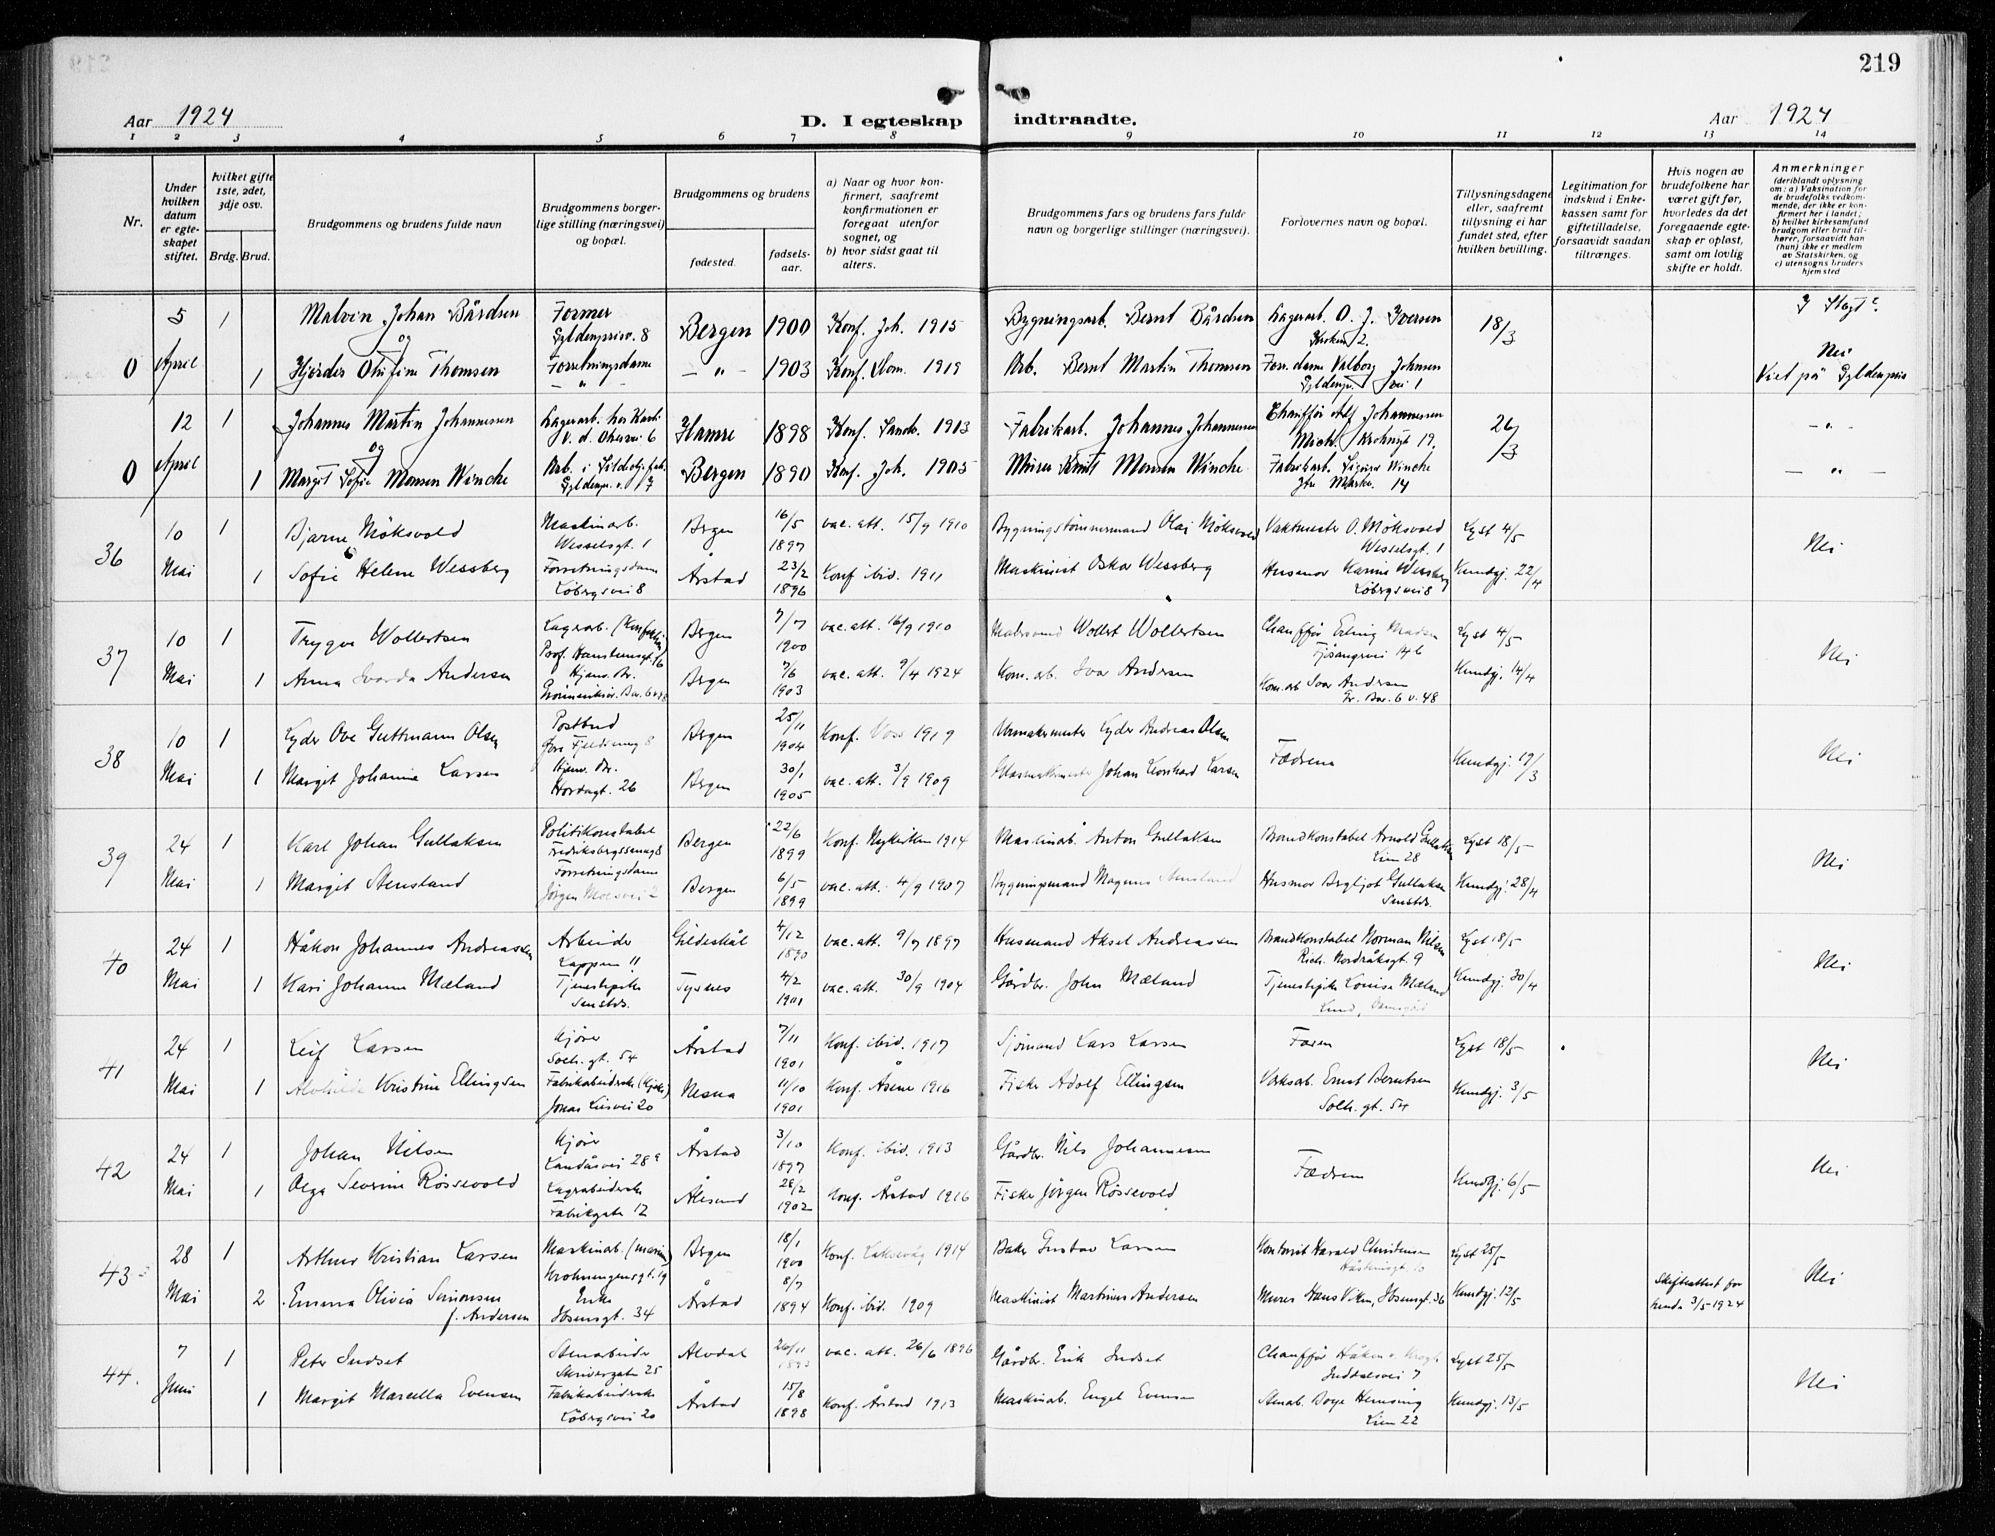 219
Aar 1924
D. I egteskap indtraadte.
Aar 1924
1 2 3 4 5 6 7 8 9 10 11 12 13 14
Nr.
Under hvilken datum er egteskapet stiftet.
Hvilket gifte 1ste, 2det, 3dje osv.
Brdg. Brud.
Brudgommens og brudens fulde navn
Brudgommens borgerlige stilling (næringsvei) og bopæl.
Brudgommens og brudens
fødested.
fødselsaar.
a) Naar og hvor konfirmert, saafremt konfirmationen er foregaat utenfor sognet, og
b) hvor sidst gaat til alters.
Brudgommens fars og brudens fars fulde navn og borgerlige stillinger (næringsvei).
Forlovernes navn og bopæl.
Tillysningsdagene eller, saafremt tillysning ei har fundet sted, efter hvilken bevilling.
Legitimation for indskud i Enkekassen samt for giftetilladelse, forsaavidt saadan tiltrænges.
Hvis nogen av brudefolkene har været gift før, hvorledes da det foregaaende egteskap er opløst, samt om lovlig skifte er holdt.
Anmerkninger
(deriblandt oplysning om: a) Vaksination for de brudefolks vedkommende, der ikke er konfirmert her i landet; b) hvilket kirkesamfund brudgom eller brud tilhører, forsaavidt han (hun) ikke er medlem av Statskirken, og c) utensogns bruders hjemsted
0 5 April 1 Malvin Johan Bårdsen Former Gyldenprisv. 8 Bergen 1900 Konf. Joh. 1915 Bygningsarb. Bernt Bårdsen Lagerarb. O. J. Iversen 2. 18/3
og
1 Thomsen Forretningsdame — " — 1903 Konf. Dom. 1919 Arb. Bernt Martin Thomsen Forr.dame Valborg Johnsen Gyldenpr. vei 1 Nei Viet på Gyldenpris
0 12 April 1 Johannes Martin Johannessen Hamre 1898 Konf. Sandv. 1913 Fabrikarb. Johannes Johannessen Chauffør Alf Johannessen Mich. Krohnsgt 19. 26/3 — " —
og
1 Margit Sofie Monsen Wincke Bergen 1890 Konf. Joh. 1905 Murer Knut Monsen Wincke Fabrikarb. Sigurd Wincke 14 — " —
36 10 Mai 1 Bjarne Möksvold Maskinarb. Wesselsgt. 1 Bergen 16/5 1897 vac. att. 15/9 1910 Bygningstømmermand Olai Möksvold Vaktmester O. Möksvold Wesselsgt. 1 Lyst 4/5 Nei
1 Sofie Helene Wessberg Forretningsdame Løbergsvei 8 Årstad 23/2 1896 Konf ibid. 1911 Maskinist Oskar Wessberg Husmor Karine Wessberg Løbergsvei 8 Kundgj. 22/4
37 10 Mai 1 Trygve Wollertsen Lagerarb. Prof. Hansteensgt. 16 Bergen 7/7 1900 vac. att. 16/9 1910 Wollert Wollertsen Chauffør Erling Madsen Fjøsangervei 146 Lyst 4/5 Nei
1 Anna Ivarda Andersen Hjemv. Br. Bergen 7/6 1903 vac. att. 9/4 1924 Kom. arb. Ivar Andersen Kom. arb Ivar Andersen Gr. Bar. 6 v. 48 Kundgj. 14/4
38 10 Mai 1 Lyder Ove Guttmann Olsen Postbud 8 Bergen 25/11 1904 Konf. Voss 1919 Urmakermester Lyder Andreas Olsen Fædrene Kundgj. 19/3 Nei
1 Margit Johanne Larsen Hjemv. Br. Hordagt. 26 Bergen 30/1 1905 vac. att. 3/9 1909 Johan Leonhard Larsen
39 24 Mai 1 Karl Johan Gullaksen Politikonstabel Fredriksbergssmug 8 Bergen 22/6 1899 Konf. Nykirken 1914 Maskinarb. Anton Gullaksen Brandkonstabel Arnold Gullaksen Lien 28 Lyst 18/5 Nei
1 Margit Stensland Forretningsdame Jørgen Moesvei 2 Bergen 6/5 1899 vac. att. 4/9 1907 Bygningsmand Magnus Stensland Husmor Bergljot Gullaksen Smstds. Kundgj. 28/4
40 24 Mai 1 Håkon Johannes Andreassen Arbeider Lappen 11 Gildeskål 4/12 1890 vac. att. 9/7 1897 Husmand Aksel Andreassen Brandkonstabel Norman Nilsen Rich. Nordråksgt. 9 Lyst 18/5 Nei
1 Kari Johanne Mæland Tjenestepike Smstds. Tysnes 4/2 1901 vac. att. 30/9 1904 Gårdbr. John Mæland Tjenestepike Louise Mæland Lund, Damsgård Kundgj. 30/4
41 24 Mai 1 Leif Larsen Kjører Solh. gt. 54 Årstad 7/11 1901 Konf. ibid. 1917 Sjømand Lars Larsen Faren Lyst 18/5 Nei
1 Alvhilda Kristine Ellingsen Fabrikarbeiderske Jonas Liesvei 20 Nesna 11/10 1901 Konf. Åsene 1916 Fisker Adolf Ellingsen Verksarb. Ernst Berntsen Solh. gt. 54 Kundgj. 3/5
42 24 Mai 1 Johan Nilsen Kjører Landåsvei 28 a Årstad 3/10 1897 Konf. ibid. 1913 Gårdbr. Nils Johannesen Fædrene Kundgj. 6/5 Nei
1 Olga Severine Røssevold Lagerarbeiderske Fabrikgaten 12 Ålesund 28/2 1902 Konf. Årstad 1916 Fisker Jørgen Røssevold
43 28 Mai 1 Arthur Kristian Larsen Maskinarb. (marinen) Krohnengensgt. 19 Bergen 18/1 1900 Konf. Laksevåg 1914 Baker Gustav Larsen Kontorist Harald Christensen 10 Lyst 25/5 Nei
2 Emma Olivia Simonsen f. Andersen Enke Ibsensgt. 34 Årstad 8/7 1894 Konf. ibid. 1909 Maskinist Martinus Andersen Murer Hans Viken, Ibsensgt. 36 Kundgj. 12/5 Skifteattest for bruden 3/5 1924
44. 7 Juni 1 Peter Indset Stenarbeider Skrivergaten 25 Alvdal 26/11 1893 vac. att. 26/6 1896 Gårdbr. Erik Indset Chauffør Håkon v. Krogh Inddalsvei 7 Lyst 25/5 Nei
1 Margit Marcella Evensen Fabrikarbeiderske Løbergsvei 20 Årstad 15/8 1898 Konf. Årstad 1913 Maskinarb. Engel Evensen Stenarb. Borge Henning Lien 22 Kundgj. 13/5